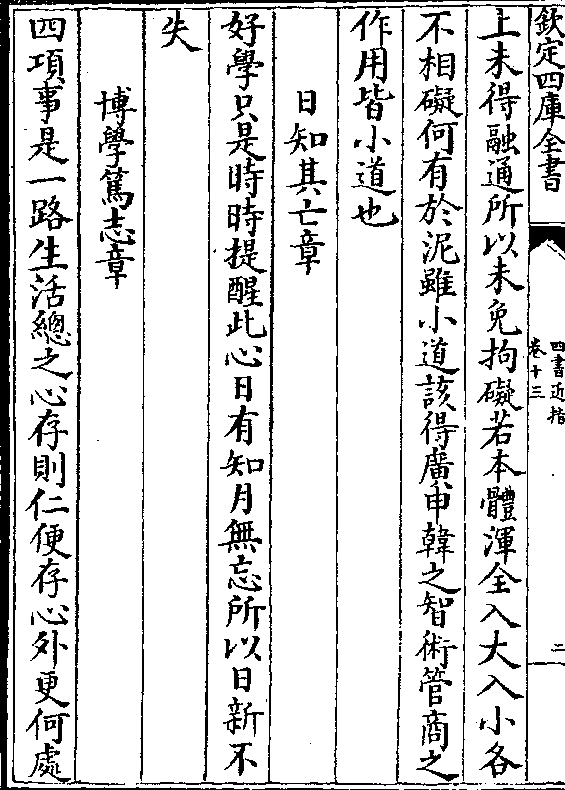 欽定四庫全書
四書近指
卷十三
二
上未得融通所以未免拘礙若本體渾全入大入小各
不相礙何有於泥雖小道該得廣申韓之智術管商之
作用皆小道也
日知其亡章
好學只是時時提醒此心日有知月無忘所以日新不
失
博學篤志章
四項事是一路生活總之心存則仁便存心外更何處